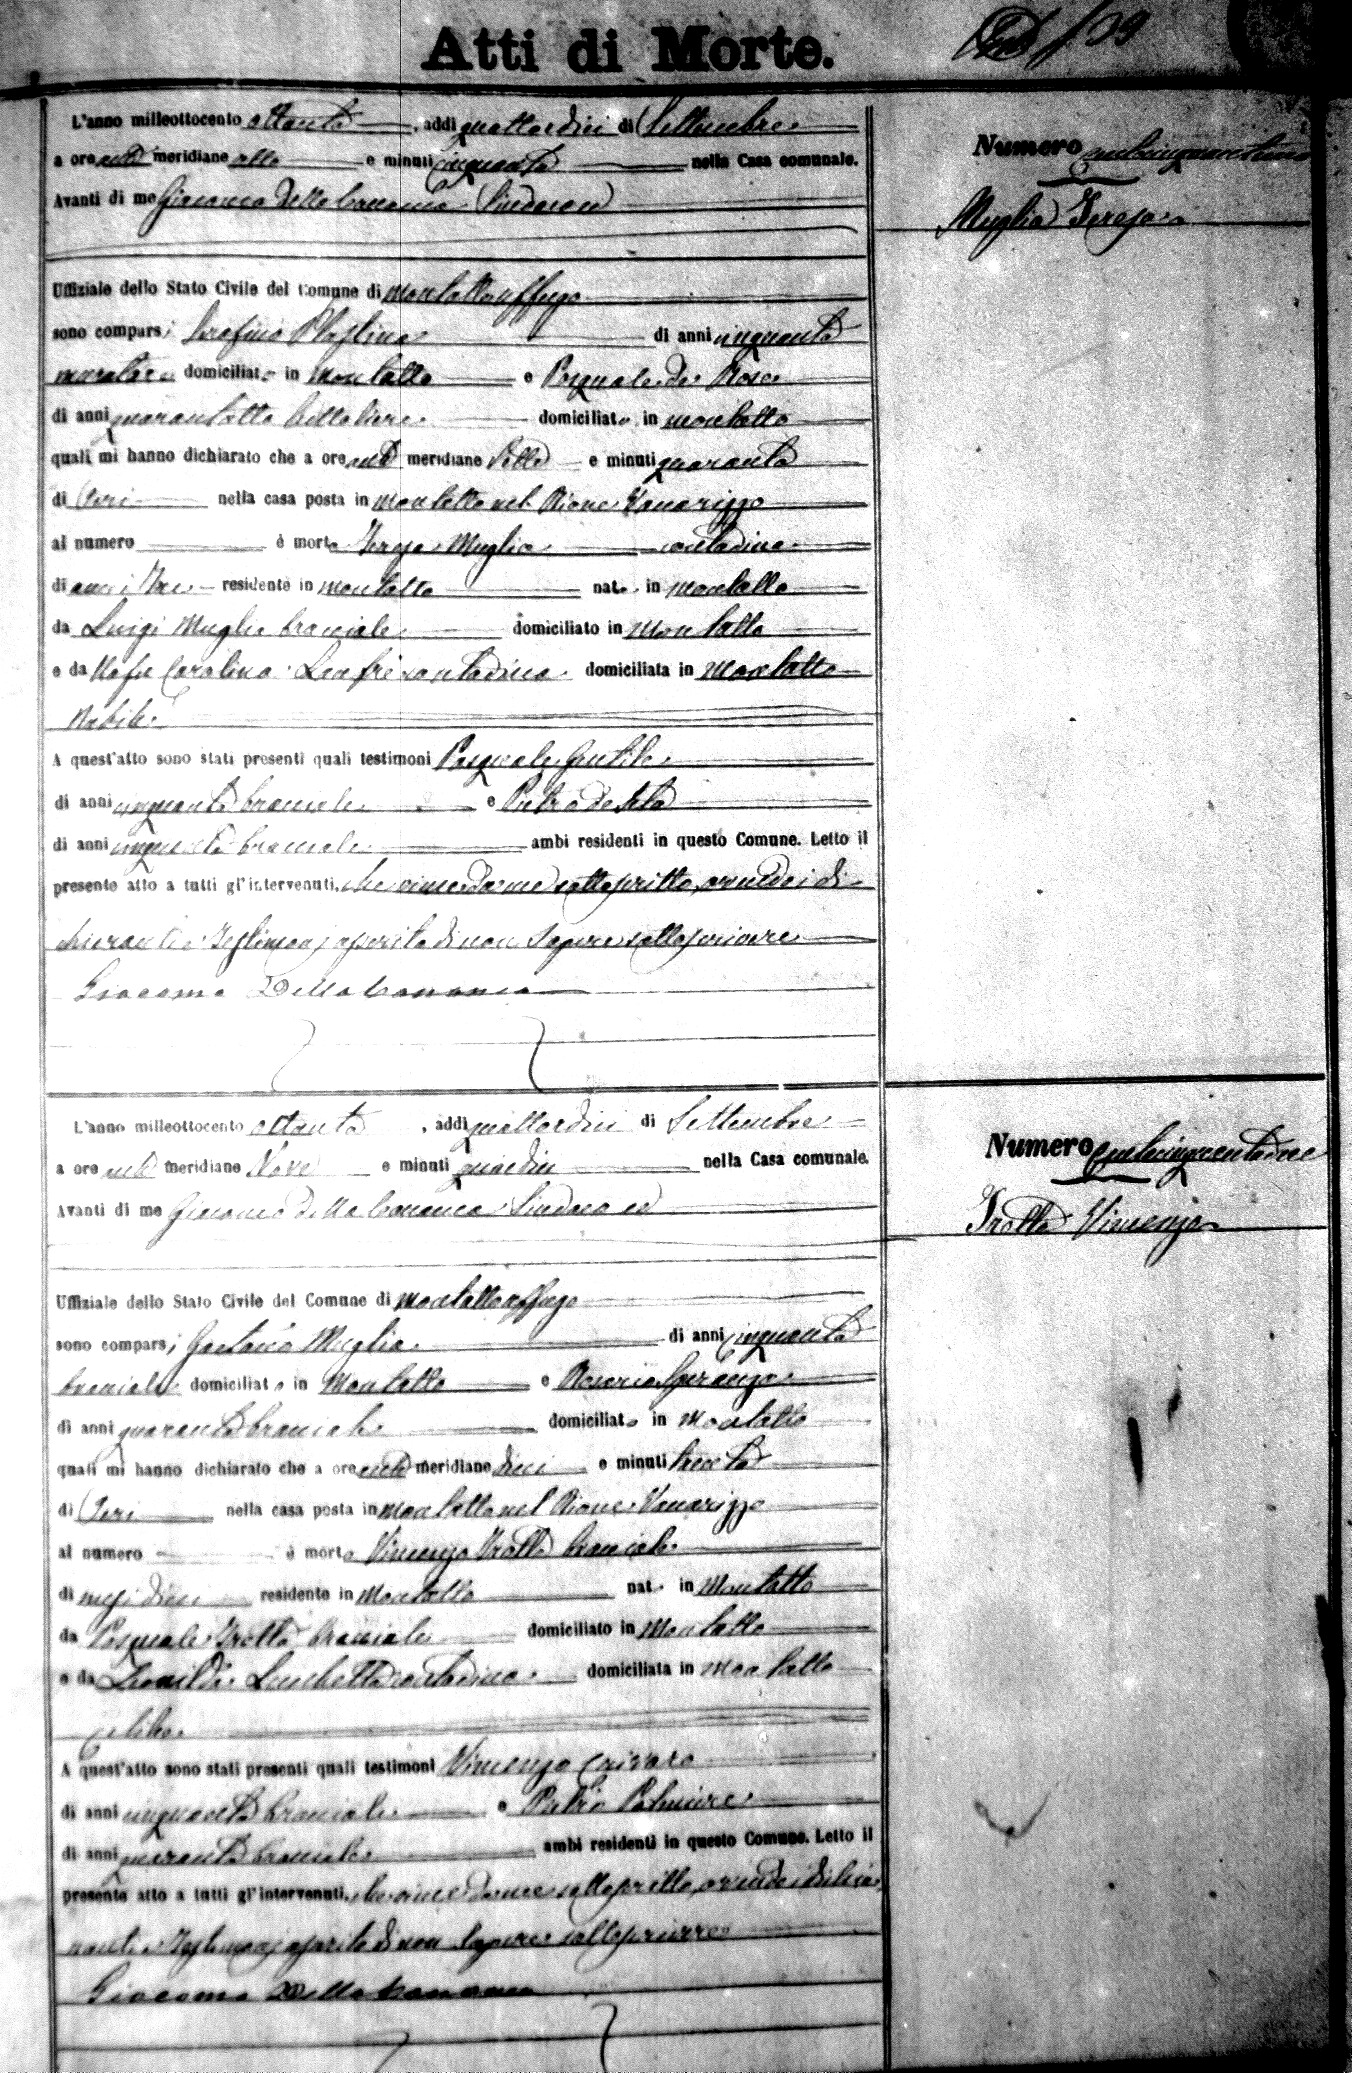 Atti di Morte.
109
L'anno milleottocento ottanta, addì quattordici di Settembre
a ore anti meridiane otto e minuti cinquanta nella Casa comunale.
Avanti di me Giacomo Della Cananea Sindaco ed
Uffiziale dello Stato Civile del Comune di Montalto Uffugo
sono comparsi Serafino Plastina di anni cinquanta
muratore domiciliato in Montalto e Pasquale de Rose
di anni quarantotto domiciliato in Montalto
quali mi hanno dichiarato che a ore anti meridiane sette e minuti quaranta
di Ieri nella casa posta in Montalto nel Rione Vaccarizzo
al numero è morta Teresa Muglia contadina
di anni tre residente in Montalto nata in Montalto
da Luigi Muglia bracciale domiciliato in Montalto
e da Carolina contadina domiciliata in Montalto
Nubile
A quest'atto sono stati presenti quali testimoni Pasquale Gentile
di anni cinquanta bracciale e Pietro de Seta
di anni cinquanta bracciale ambi residenti in questo Comune. Letto il
presente atto a tutti gl'intervenuti, che viene da me sottoscritto, avendo i di-
chiaranti e testimonj asserito di non sapere sottoscrivere
Giacomo Della Cananea
Numero centocinquantuno
Muglia Teresa
L'anno milleottocento ottanta, addì quattordici di Settembre
a ore anti meridiane Nove e minuti quindici nella Casa comunale.
Avanti di me Giacomo Della Cananea Sindaco ed
Uffiziale dello Stato Civile del Comune di Montalto Uffugo
sono comparsi Gaetano Muglia di anni cinquanta
bracciale domiciliato in Montalto e Rosario Speranza
di anni quaranta bracciale domiciliato in Montalto
quali mi hanno dichiarato che a ore anti meridiane dieci e minuti trenta
di Ieri nella casa posta in Montalto nel Rione Vaccarizzo
al numero è morto Vincenzo Trotta bracciale
di mesi dieci residente in Montalto nato in Montalto
da Pasquale Trotta bracciale domiciliato in Montalto
e da Leonilda Luchetta contadina domiciliata in Montalto
celibe
A quest'atto sono stati presenti quali testimoni Vincenzo Crivaro
di anni cinquanta bracciale e Pietro Palmieri
di anni quaranta bracciale ambi residenti in questo Comune. Letto il
presente atto a tutti gl'intervenuti, che viene da me sottoscritto, avendo i dichia-
ranti e testimonj asserito di non sapere sottoscrivere
Giacomo Della Cananea
Numero centocinquantadue
Trotta Vincenzo